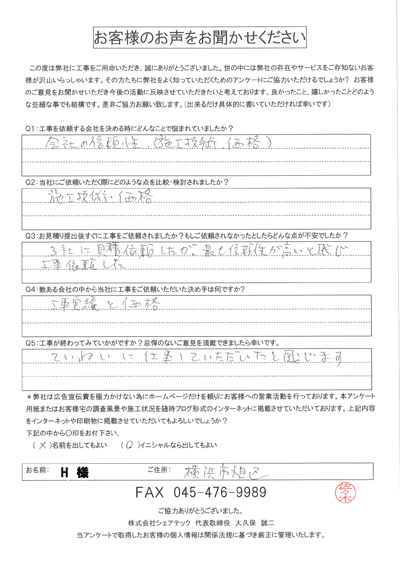 お客様のお声をお聞かせください
この度は弊社に工事をご用命いただき、誠にありがとうございました。世の中には弊社の存在やサービスをご存知ないお客
様が沢山いらっしゃいます。その方たちに弊社をよく知っていただくためのアンケートにご協力いただけるでしょうか? お客様
のご意見をお聞かせいただき今後の活動に反映させていただきたいと考えております。良かったこと、嬉しかったことどのよう
な些細な事でも結構です。是非ご協力お願い致します。(出来るだけ具体的に書いていただければ幸いです)
Q1:工事を依頼する会社を決める時にどんなことで悩まれていましたか?
会社の信頼性(施工技術、価格)
Q2:当社にご依頼いただく際にどのような点を比較・検討されましたか?
施工技術、価格
Q3:お見積り提出後すぐに工事をご依頼されましたか?もしご依頼されなかったとしたらどんな点が不安でしたか?
3社に見積依頼したが、最も信頼性が高いと感じ
工事依頼した
Q4:数ある会社の中から当社に工事をご依頼いただいた決め手は何ですか?
工事実績と価格
Q5:工事が終わってみていかがですか?忌憚のないご意見を頂戴できましたら幸いです。
ていねいに仕事していただいたと感じます
*弊社は広告宣伝費を極力かけない為にホームページだけを頼りにお客様への営業活動を行っております。本アンケート
用紙またはお客様宅の調査風景や施工状況を随時ブログ形式のインターネットに掲載させていただいております。上記内容
をインターネットや印刷物に掲載させていただいてもよろしいでしょうか?
下記の中から〇印をお付け下さい。
(×)名前を出してもよい (〇)イニシャルなら出してもよい
お名前: H 様 ご住所: 横浜市旭区
FAX 045-476-9989
ご協力ありがとうございました。
株式会社シェアテック 代表取締役 大久保 誠二
当アンケートで取得したお客様の個人情報は関係法規に基づき厳正に管理いたします。